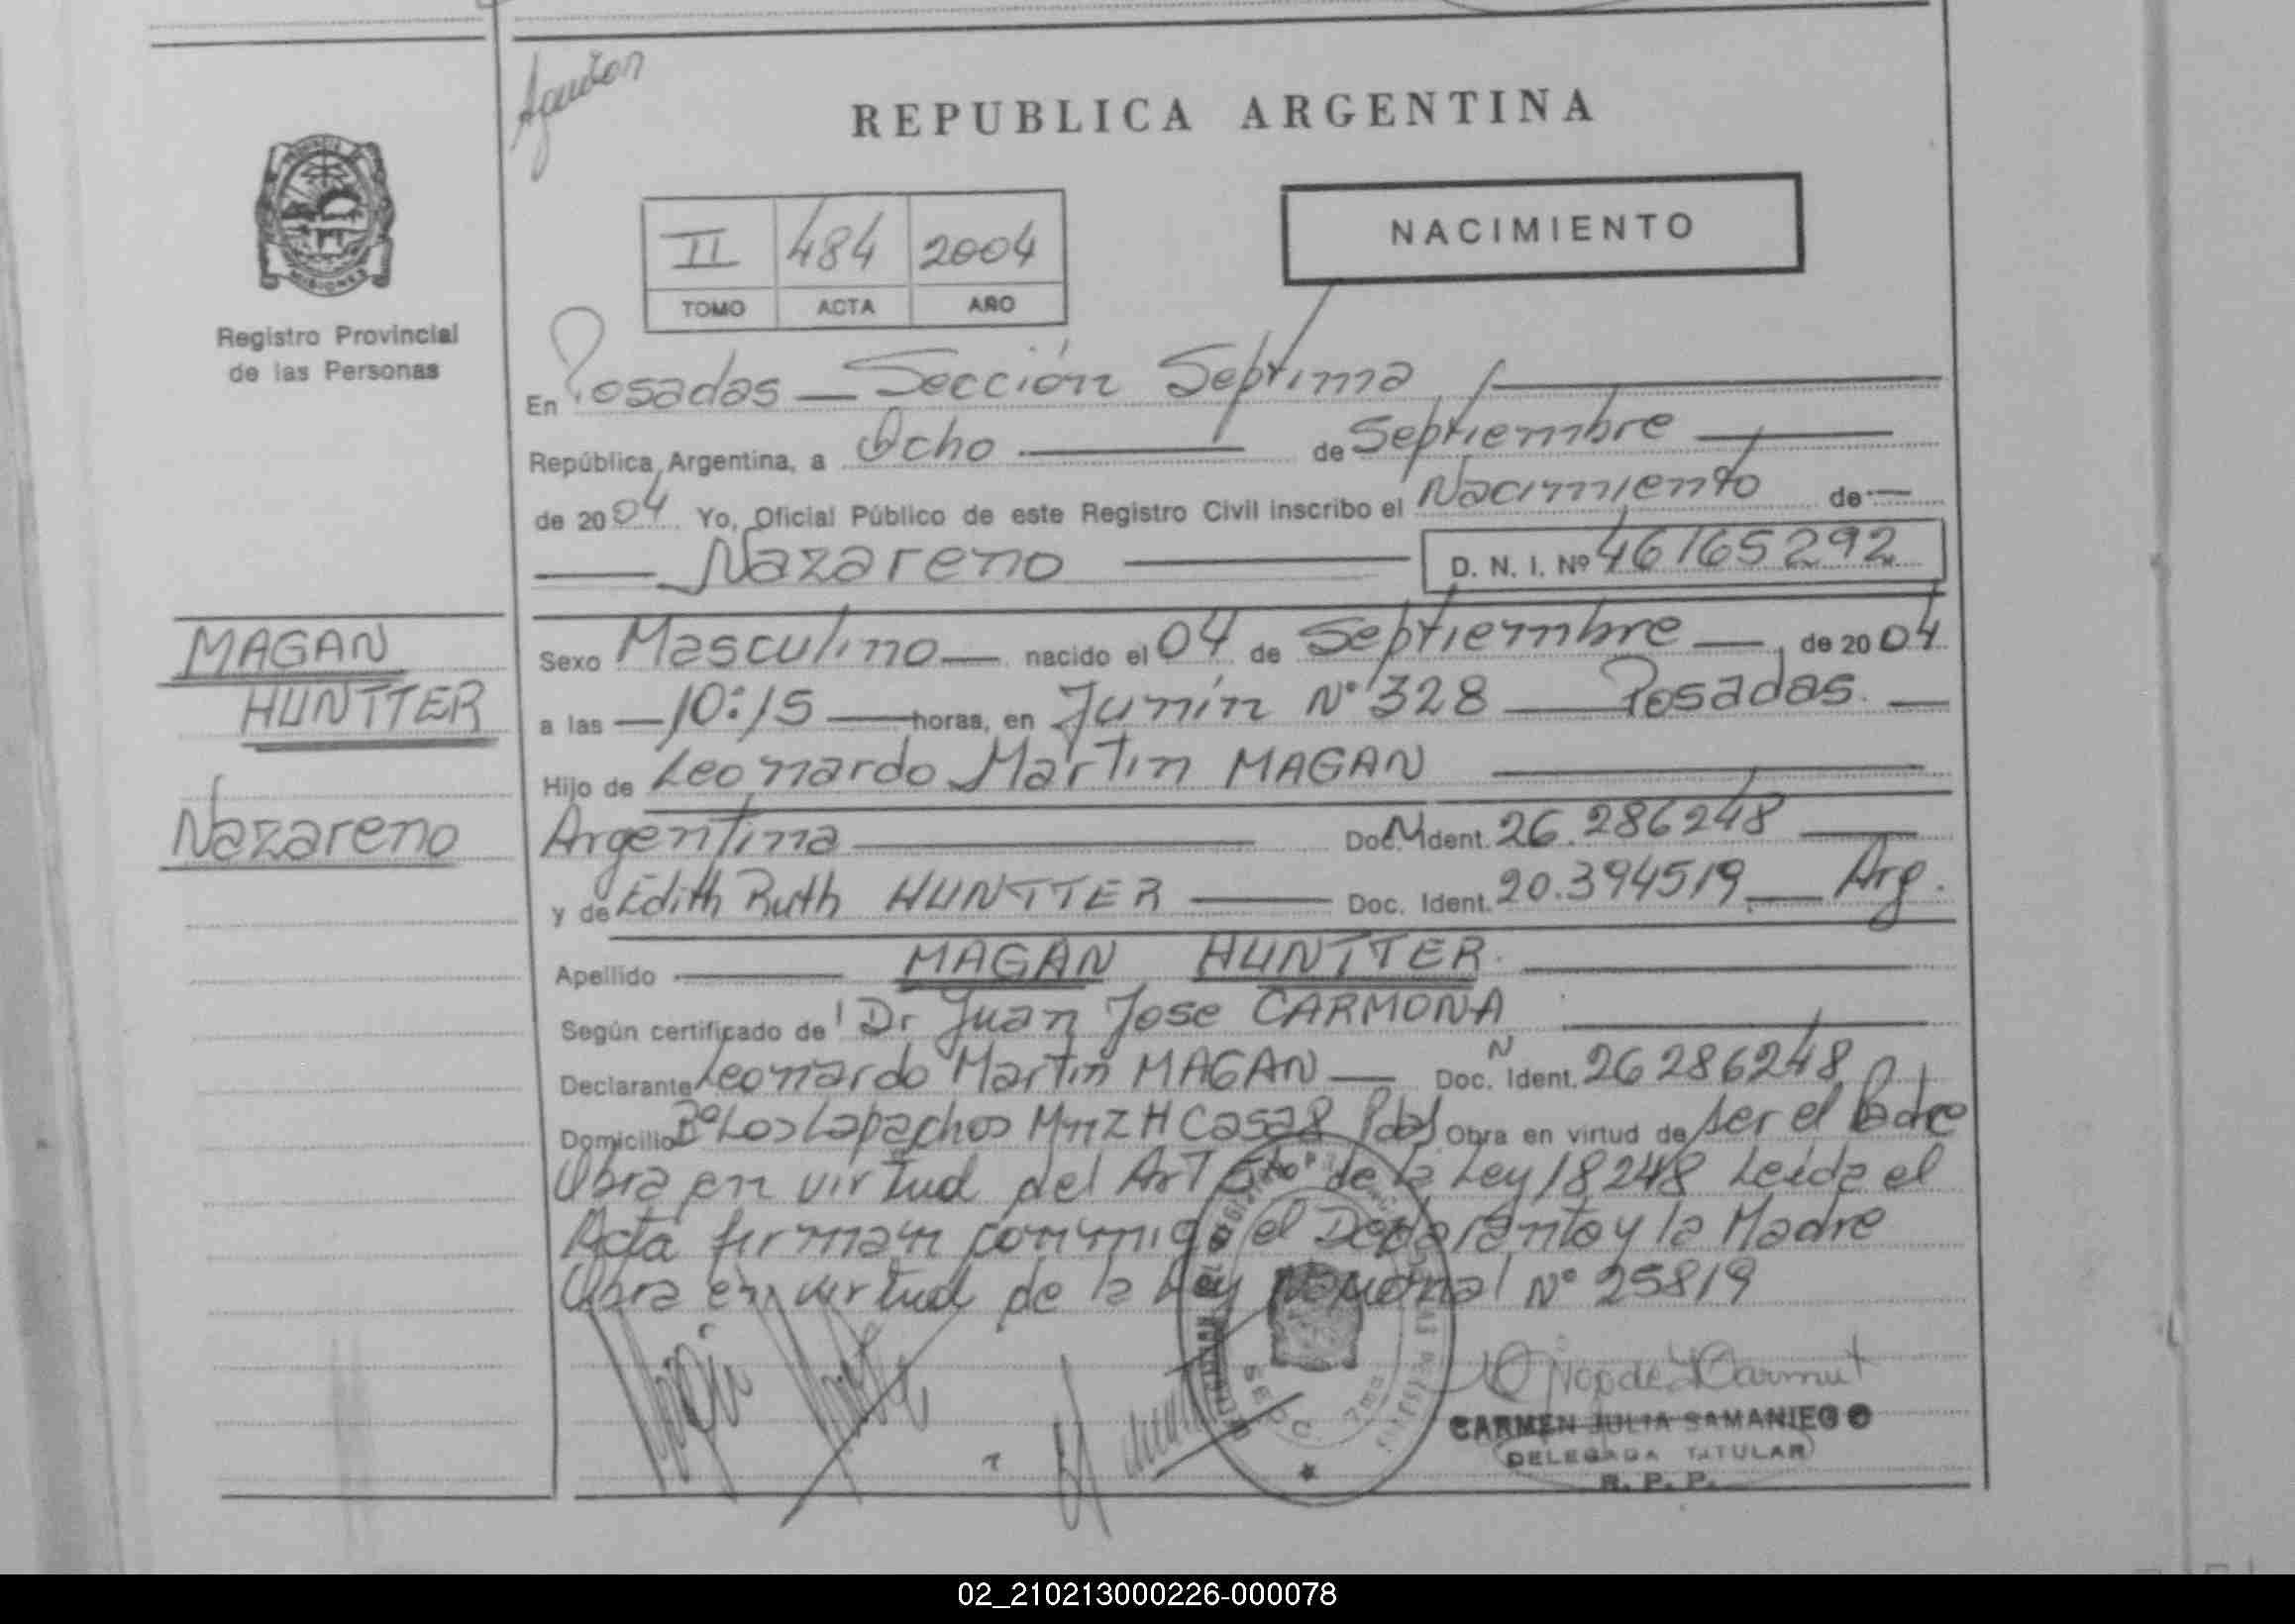 Aguilar
REPUBLICA ARGENTINA
NACIMIENTO
II 484 2004
TOMO ACTA AÑO
MISIONES
Registro Provincial
de las Personas
En Posadas — Sección Septima
República Argentina, a Ocho de Septiembre
de 2004 Yo, Oficial Público de este Registro Civil inscribo el Nacimiento de
Nazareno D. N. I. Nº 46165292
MAGAN
HUNTTER
Nazareno
Sexo Masculino — nacido el 04 de Septiembre — de 2004
a las — 10:15 — horas, en Junín N° 328 — Posadas. —
Hijo de Leonardo Martin MAGAN
Argentina Doc. N Ident. 26.286248
y de Edith Ruth HUNTTER — Doc. Ident. 20.394519 — Arg.
Apellido MAGAN HUNTTER
Según certificado de Dr Juan Jose CARMONA
Declarante Leonardo Martin MAGAN — Doc. N Ident. 26286248
Domicilio Bº Los Lapachos MnzH Casa8 Pdas Obra en virtud de ser el Padre
Obra en virtud del Art 5to de la Ley 18248 Leida el
Acta firman conmigo el Declarante y la Madre
Obra en virtud de la Ley Nacional N° 25819
CARMEN JULIA SAMANIEGO
DELEGADA TITULAR
R. P. P.
02_210213000226-000078